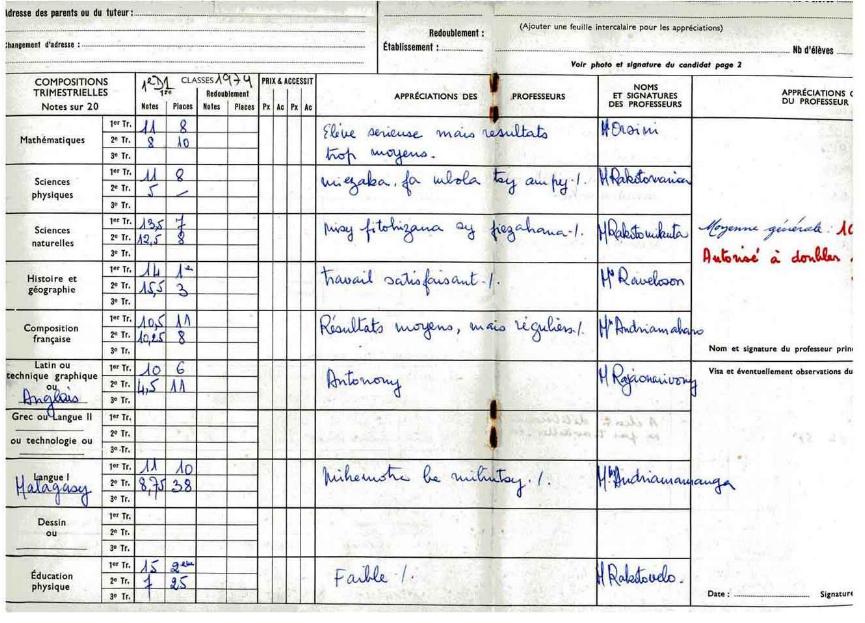 Adresse des parents ou du tuteur :
Changement d'adresse :
Redoublement :
(Ajouter une feuille intercalaire pour les appréciations)
Établissement :
Nb d'élèves
Voir photo et signature du candidat page 2
COMPOSITIONS TRIMESTRIELLES Notes sur 20
CLASSES 1974
1re
Notes Places
Redoublement
Notes Places
PRIX & ACCESSIT
Px Ac Px Ac
APPRÉCIATIONS DES PROFESSEURS
NOMS ET SIGNATURES DES PROFESSEURS
APPRÉCIATIONS
DU PROFESSEUR
Mathématiques
1er Tr. 11 8
2e Tr. 8 10
3e Tr.
Elève serieuse mais resultats
trop moyens.
Orsini
Sciences physiques
1er Tr. 11 8
2e Tr. 5 -
3e Tr.
miezaka, fa mbola tsy ampy./.
Sciences naturelles
1er Tr. 13,5 7
2e Tr. 12,5 8
3e Tr.
misy fitohizana sy fiezahana./.
Moyenne générale : 10
Autorisé à doubler
Histoire et géographie
1er Tr. 14 1er
2e Tr. 15,5 3
3e Tr.
travail satisfaisant ./.
Raveloson
Composition française
1er Tr. 10,5 11
2e Tr. 10,25 8
3e Tr.
Résultats moyens, mais réguliers./.
Nom et signature du professeur prin
Visa et éventuellement observations du
Latin ou technique graphique ou
Anglais
1er Tr. 10 6
2e Tr. 4,5 11
3e Tr.
Antonomy
Grec ou Langue II
ou technologie ou
1er Tr.
2e Tr.
3e Tr.
Langue I
Malagasy
1er Tr. 11 10
2e Tr. 8,75 38
3e Tr.
Dessin
ou
1er Tr.
2e Tr.
3e Tr.
Éducation physique
1er Tr. 15 2ème
2e Tr. 7 25
3e Tr.
Faible ./.
Rakotovelo.
Date : Signature